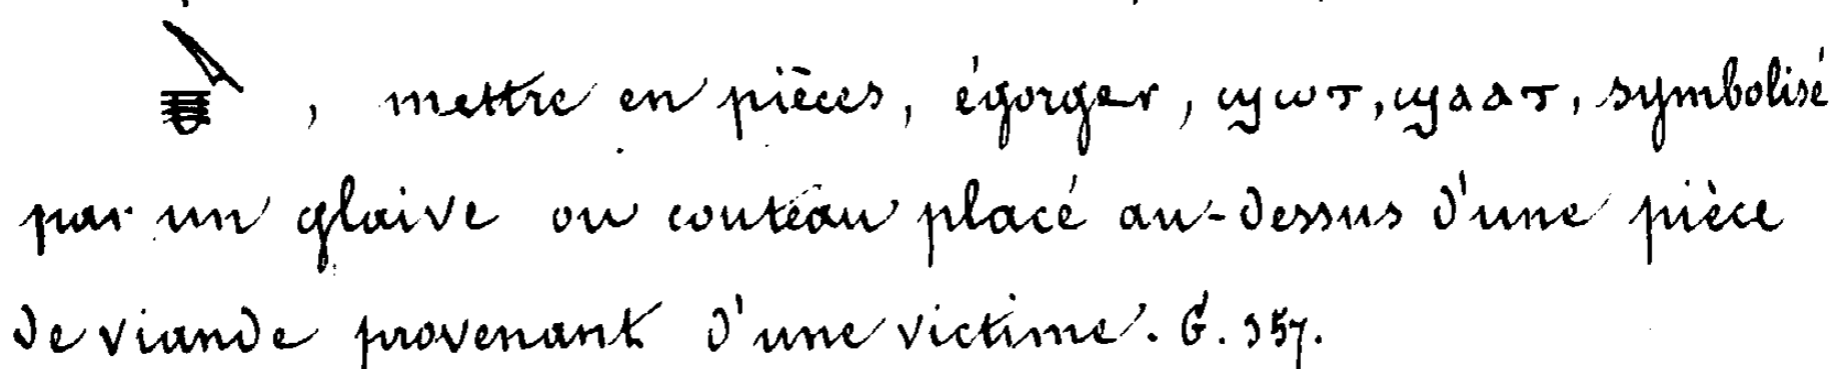 , mettre en pièces, égorger, ϣωτ, ϣαατ, symbolisé
par un glaive ou couteau placé au-dessus d'une pièce
de viande provenant d'une victime. G. 357.